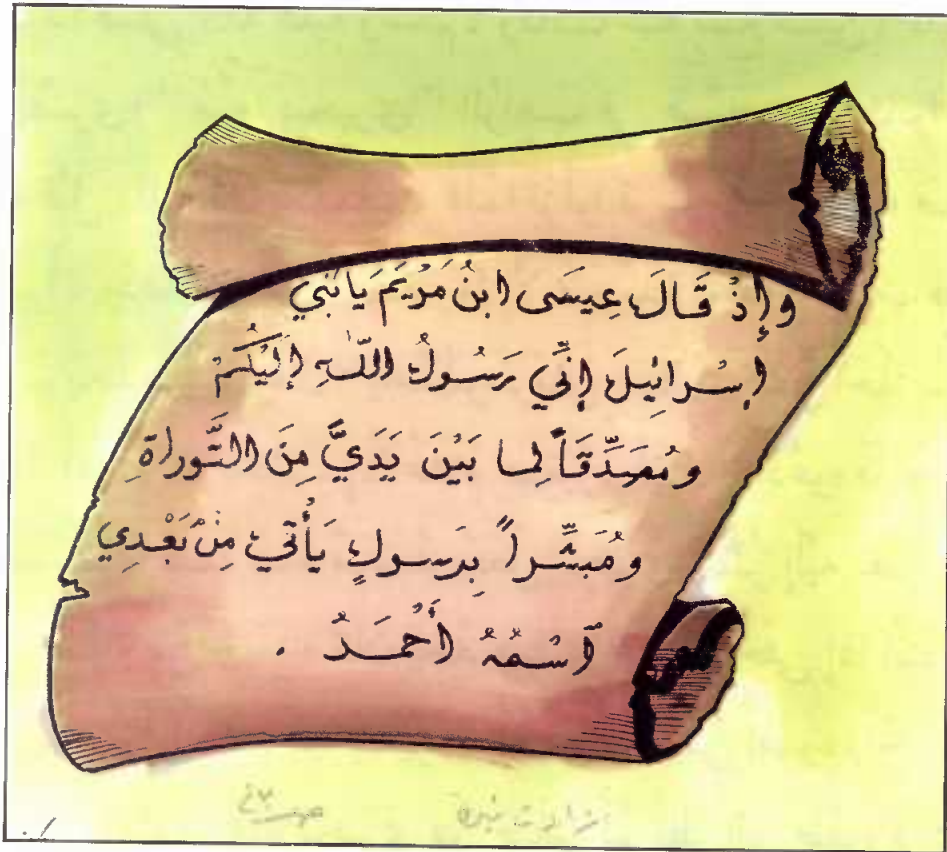 وإِذْ قَالَ عِيسَى ابنُ مَرْيَمَ يَابَني
إسْرائِيلَ إنِّي رَسُولُ اللّهِ إلَيْكُمْ
ومُصَدِّقَاً لِما بَيْنَ يَدَيَّ مِنَ التَّوراةِ
ومُبَشِّراً بِرَسولٍ يَأْتي مِنْ بَعْدِي
آسْمُهُ أَحْمَدُ .